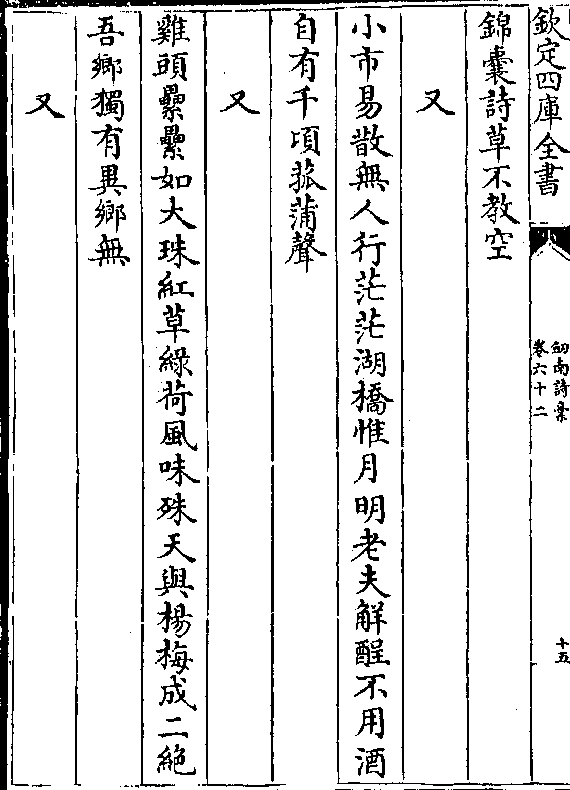 欽定四庫全書
劎南詩稾
卷六十二
十五
錦囊詩草不教空
又
小市易散無人行茫茫湖橋惟月明老夫解酲不用酒
自有千頃菰蒲聲
又
雞頭纍纍如大珠紅草綠荷風味殊天與楊梅成二絶
吾鄉獨有異鄉無
又